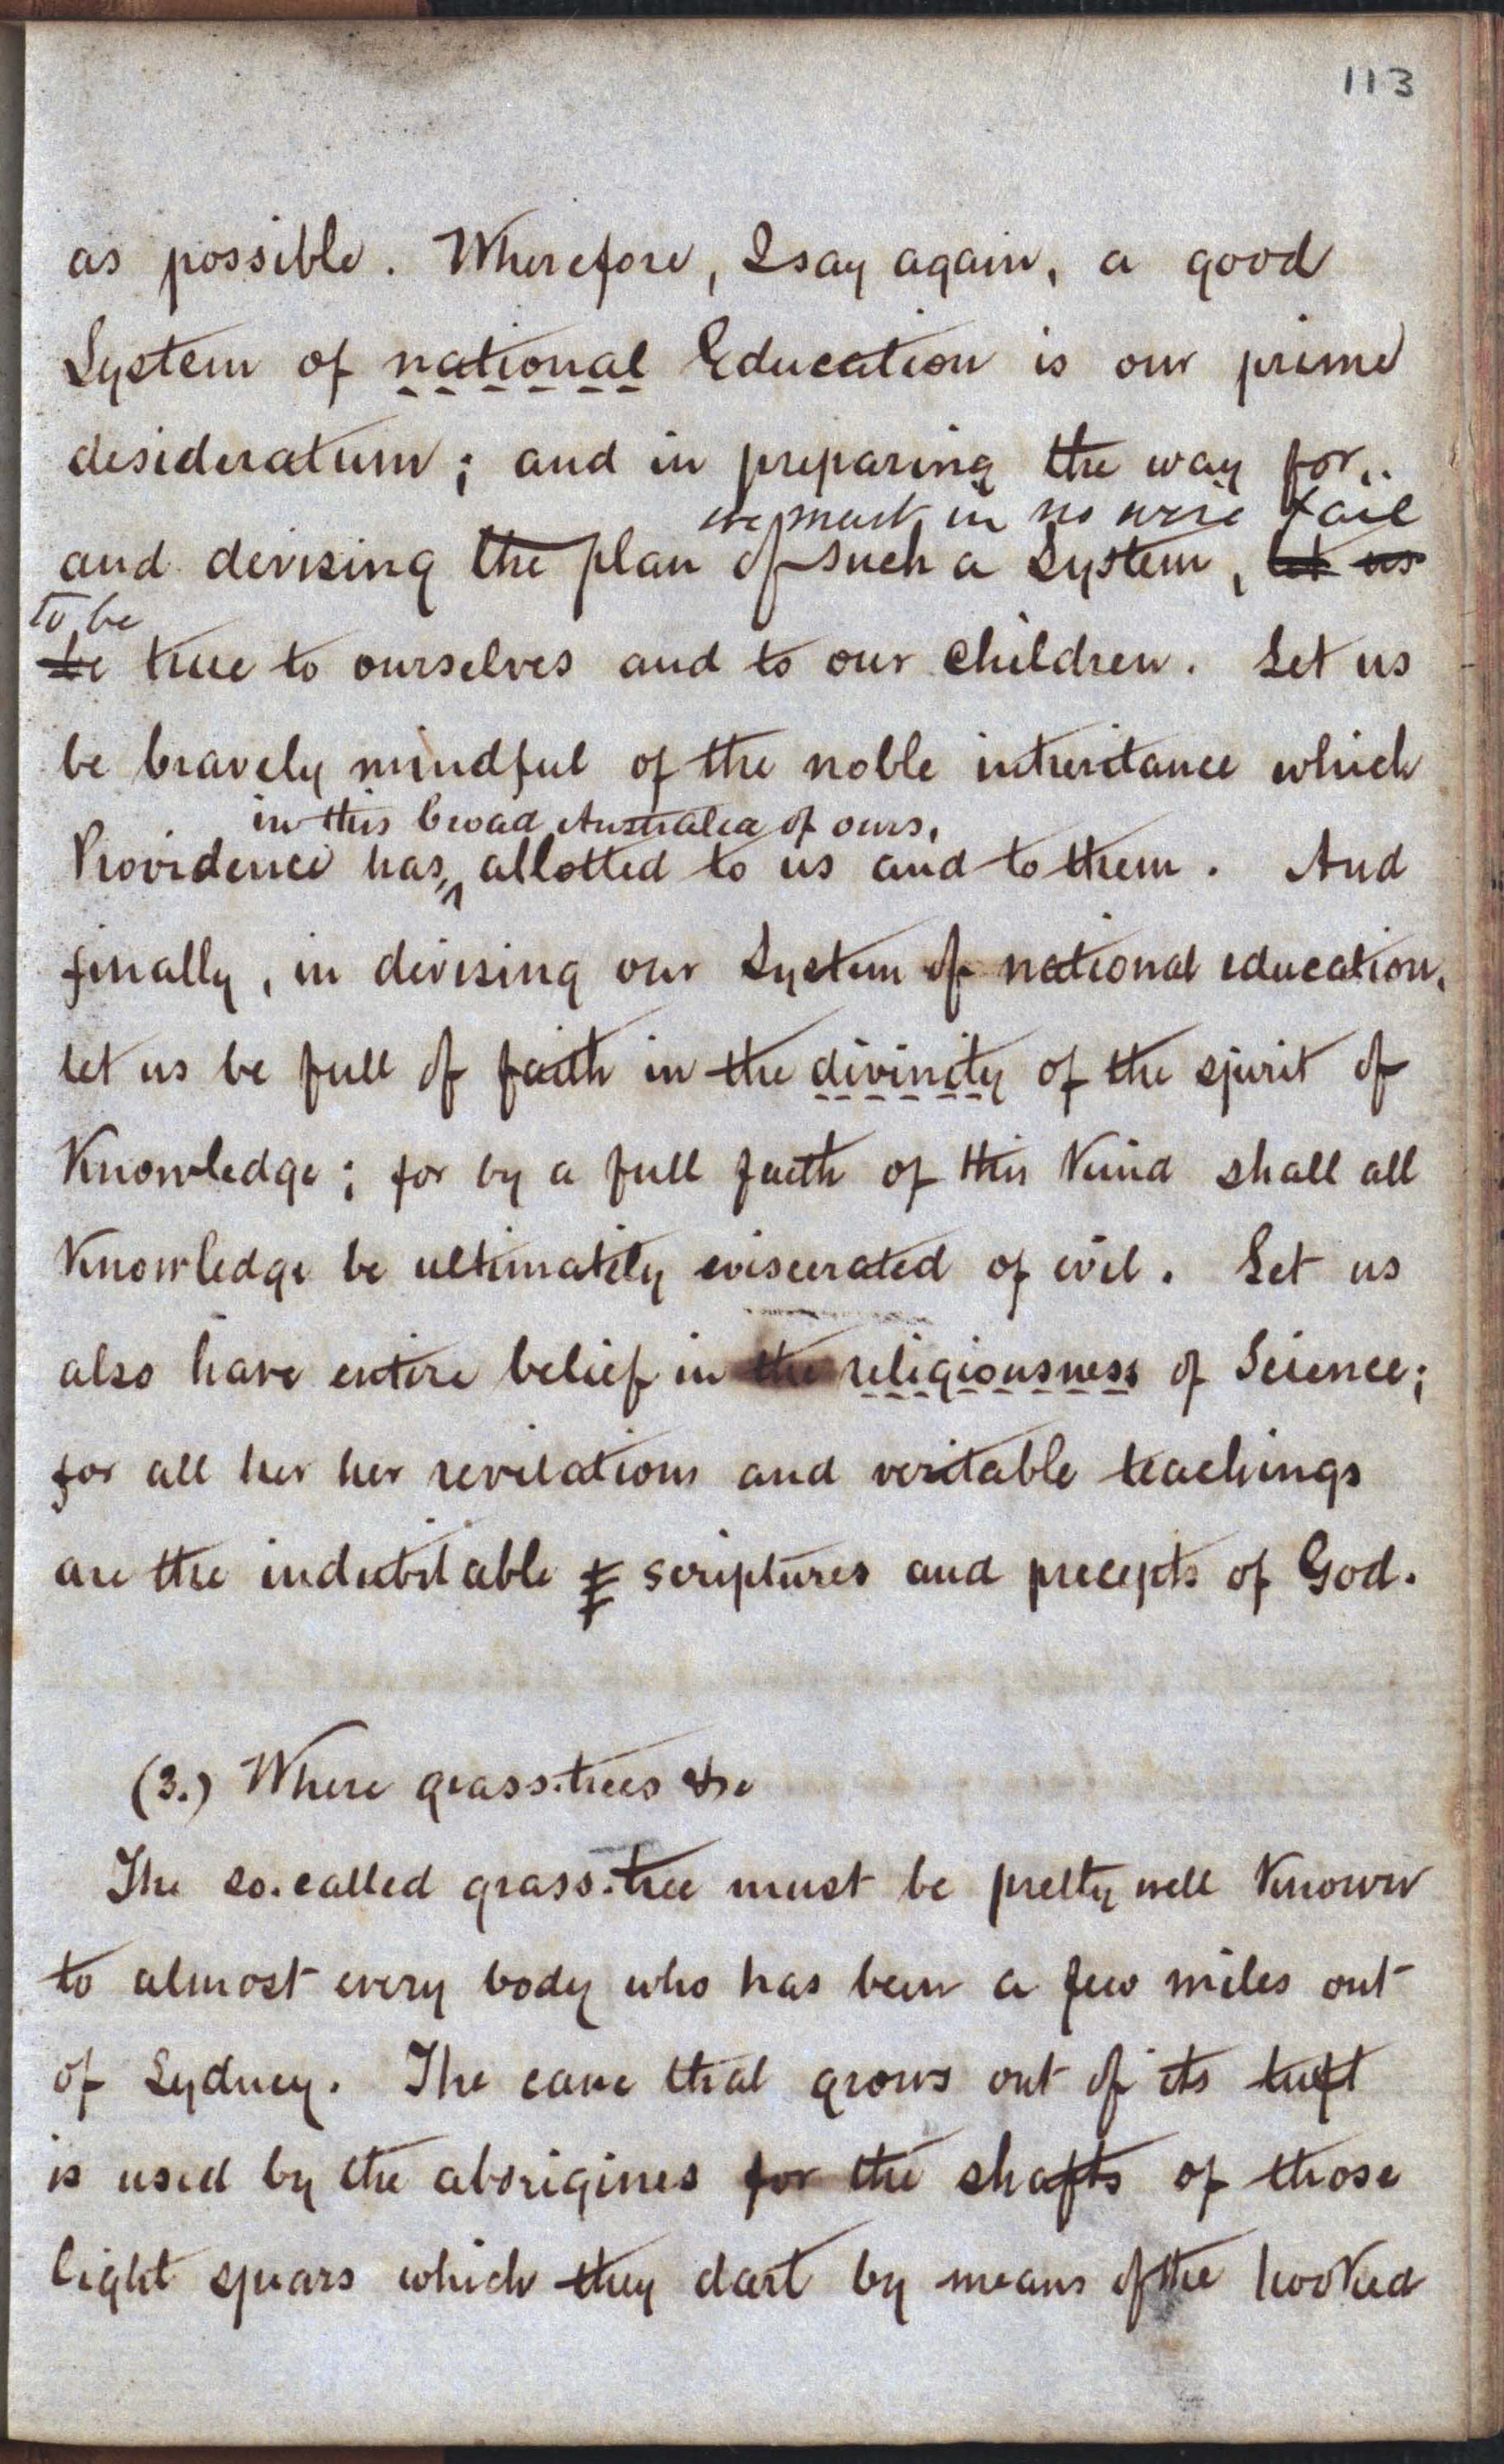 113
as possible. Wherefore, I say again, a good
System of national Education is our prime
desideratum; and in preparing the way for,
we must in no wise fail
and devising the plan of such a System, let us
to be
be true to ourselves and to our children. Let us
be bravely mindful of the noble inheritance which
in this broad Australia of ours,
Providence has, allotted to us and to them. And
finally, in devising our System of national education,
let us be full of faith in the divinity of the spirit of
Knowledge; for by a full faith of this Kind shall all
Knowledge be ultimately eviscerated of evil. Let us
also have entire belief in the religiousness of Science;
for all her her revelations and veritable teachings
are the indubitable scriptures and precepts of God.
(3.) Where grass-trees &c
The so-called grass-tree must be pretty well Known
to almost every body who has been a few miles out
of Sydney. The cane that grows out of its tuft
is used by the aborigines for the shafts of those
light spears which they dart by means of the hooked